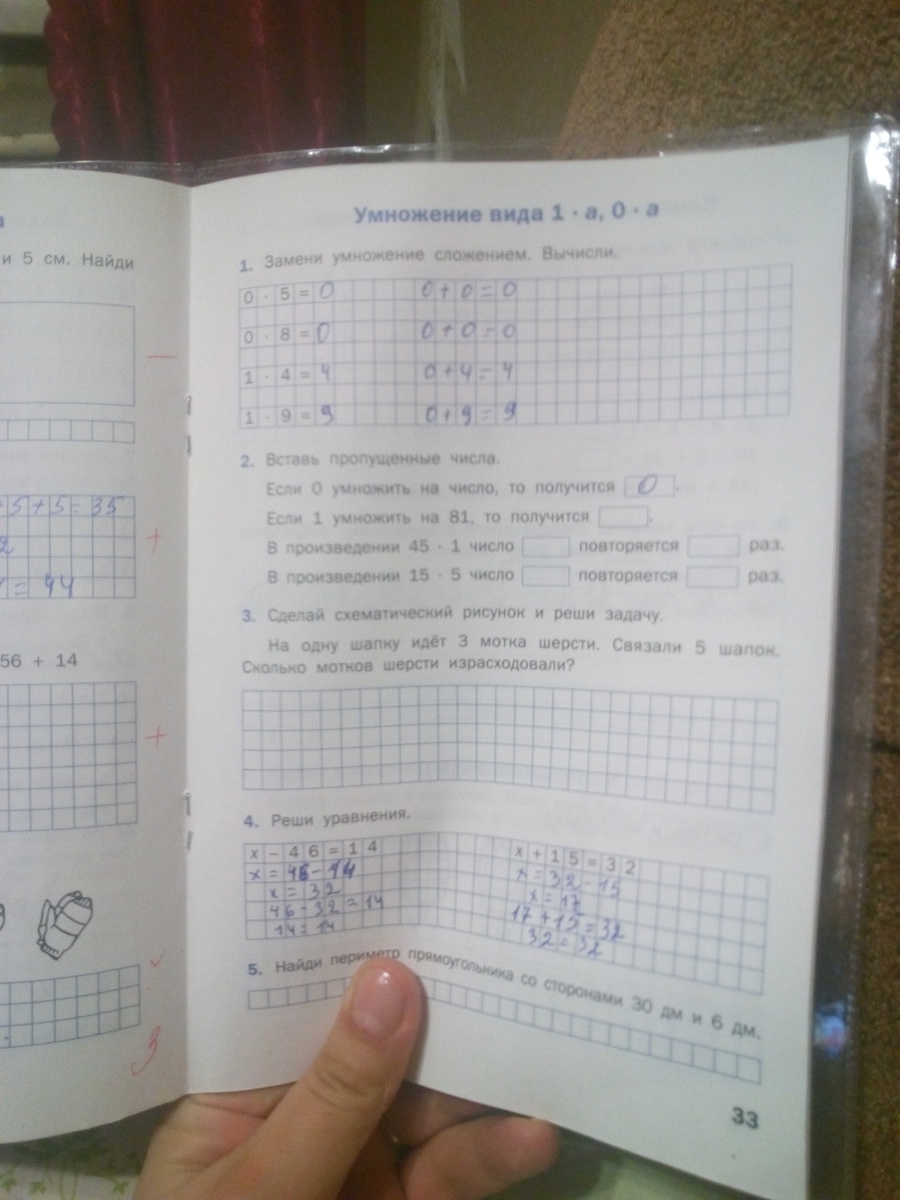 а
и 5 см. Найди
+5+5=35
2
= 44
56 + 14
3
Умножение вида 1 · а, 0 · а
1. Замени умножение сложением. Вычисли.
0 · 5 = 0 0+0=0
0 · 8 = 0 0+0=0
1 · 4 = 4 0+4=4
1 · 9 = 9 0+9=9
2. Вставь пропущенные числа.
Если 0 умножить на число, то получится 0.
Если 1 умножить на 81, то получится .
В произведении 45 · 1 число повторяется раз.
В произведении 15 · 5 число повторяется раз.
3. Сделай схематический рисунок и реши задачу.
На одну шапку идёт 3 мотка шерсти. Связали 5 шапок.
Сколько мотков шерсти израсходовали?
4. Реши уравнения.
x - 46 = 14 x + 15 = 32
x = 46 - 14 x = 32 - 15
x = 32 x = 17
46 - 32 = 14 17 + 15 = 32
14 = 14 32 = 32
5. Найди периметр прямоугольника со сторонами 30 дм и 6 дм.
33